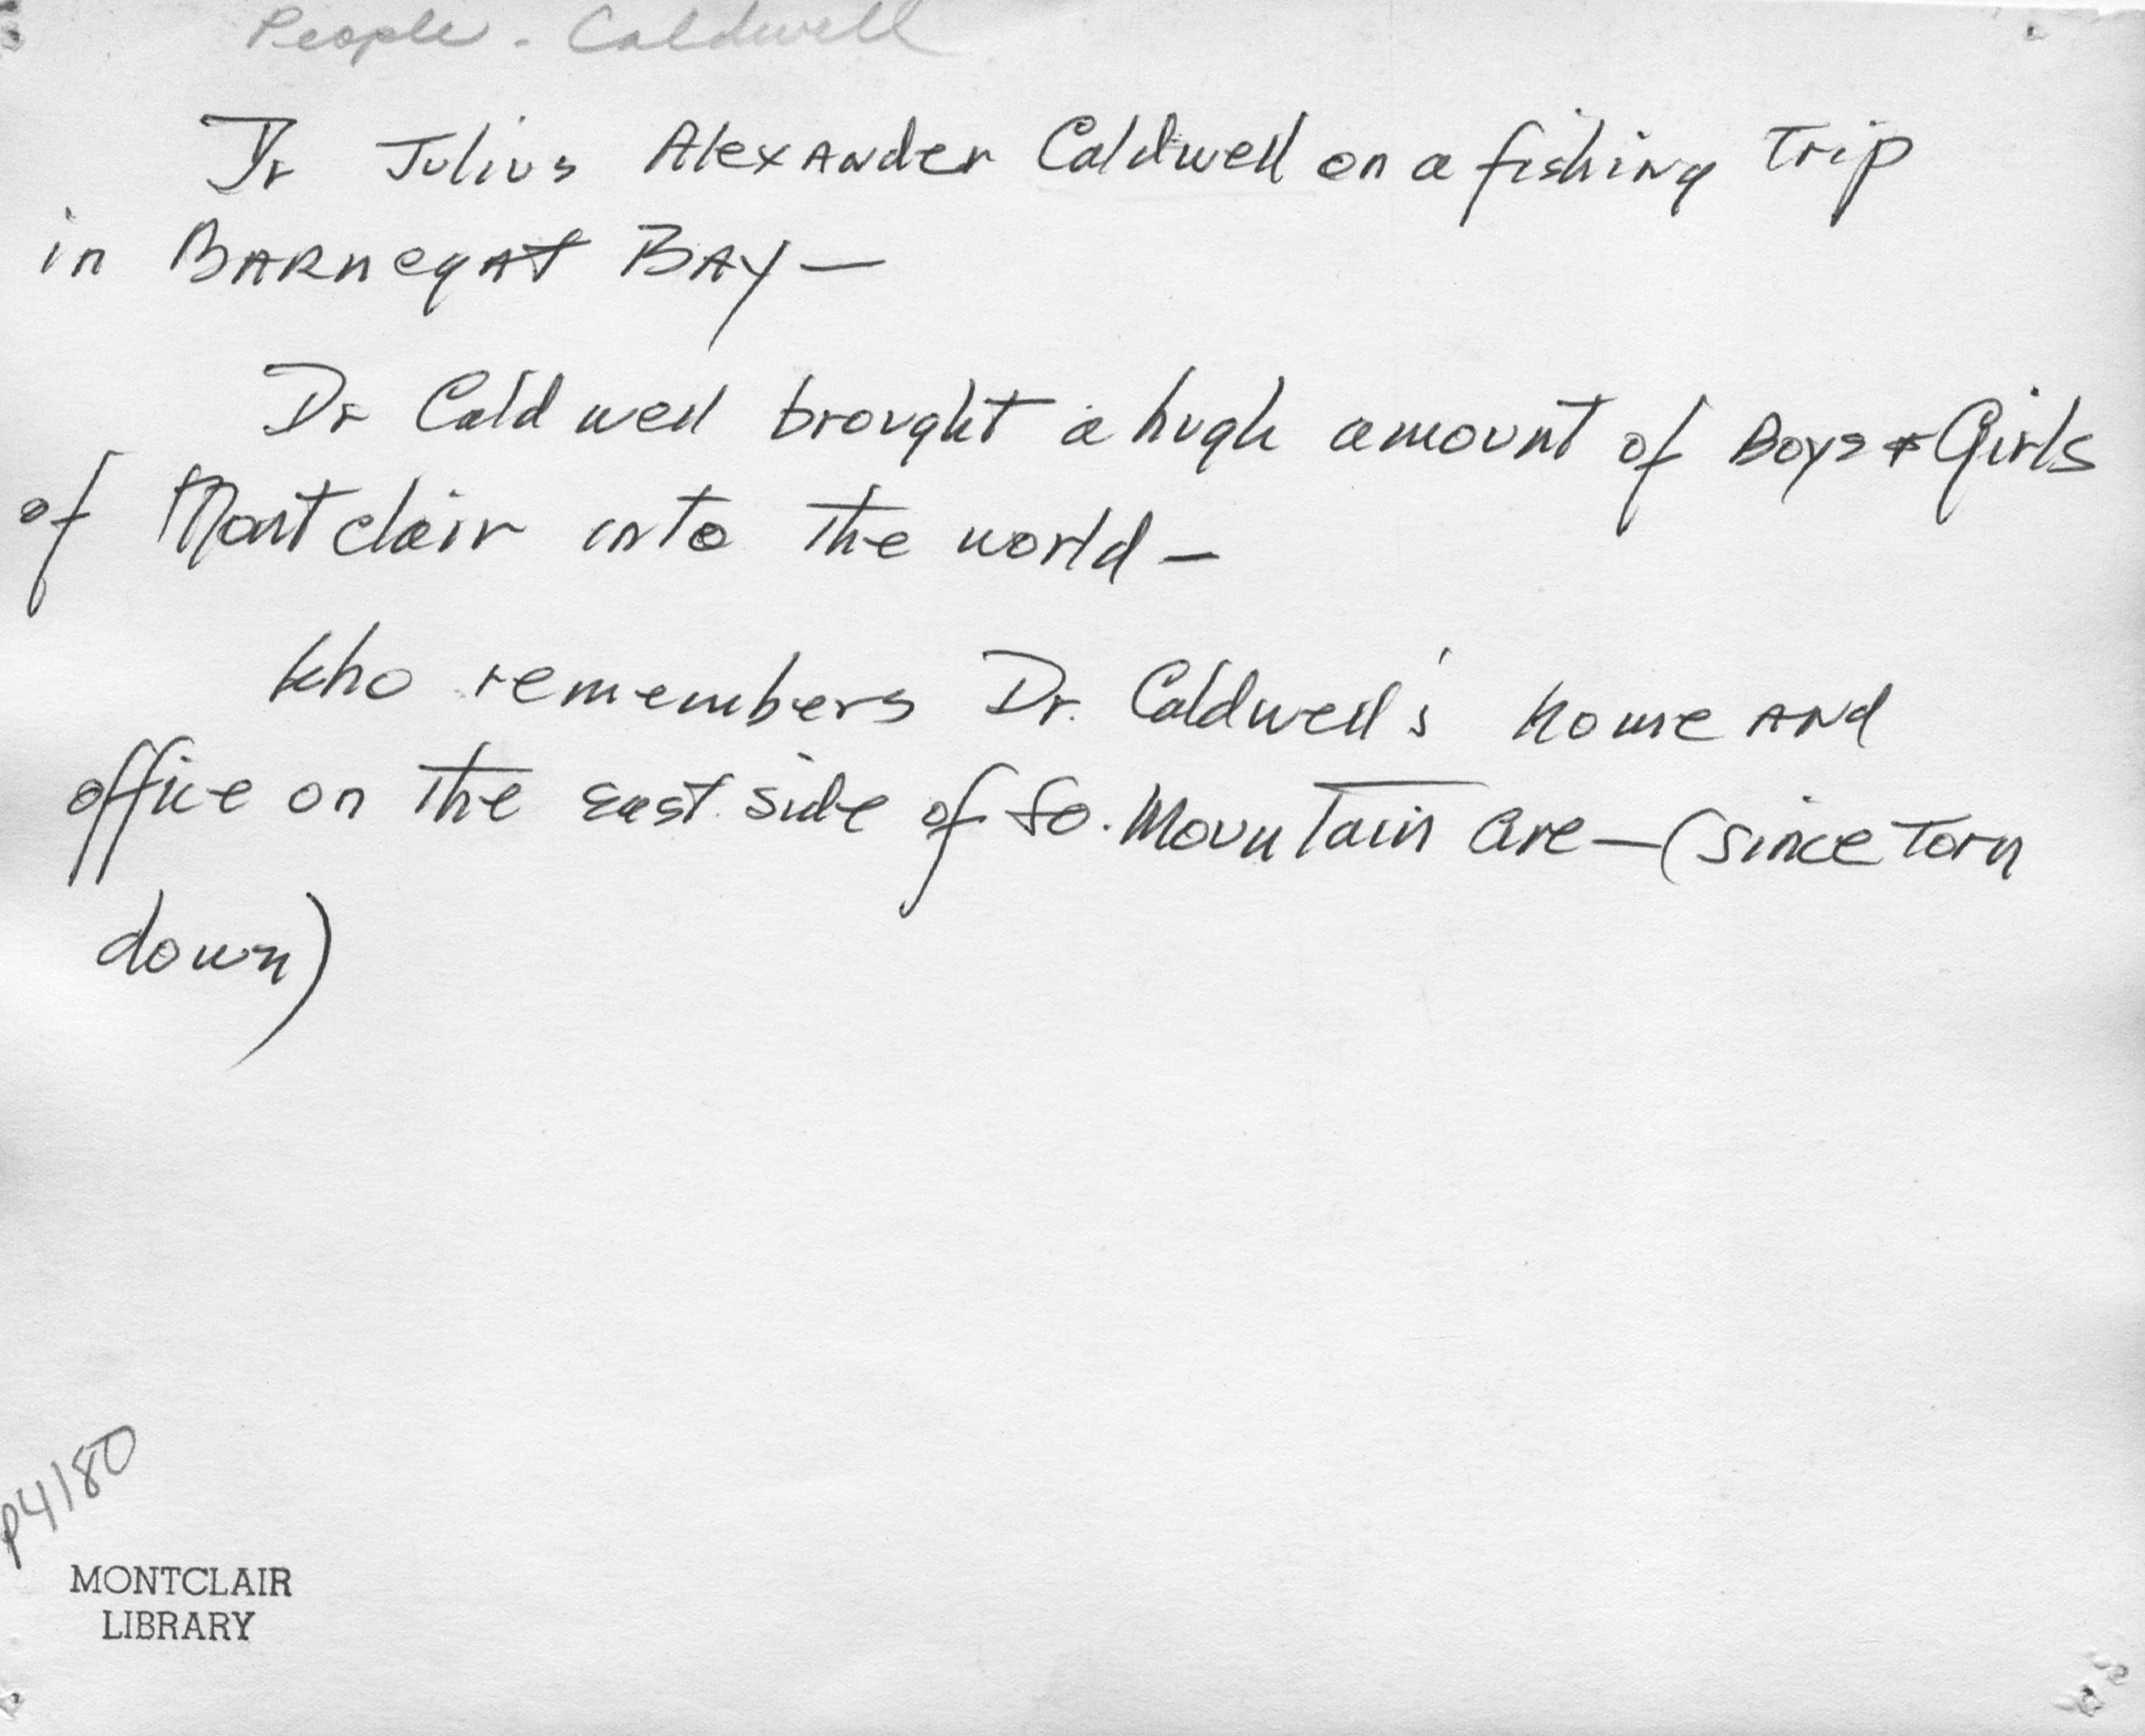 People - Caldwell
Dr Julius Alexander Caldwell on a fishing Trip
in Barnegat Bay —
Dr Caldwell brought a hugh amount of Boys & Girls
of Montclair into the world —
Who remembers Dr. Caldwell's home and
office on the east side of So. Mountain Ave — (since torn
down)
P4180
MONTCLAIR
LIBRARY